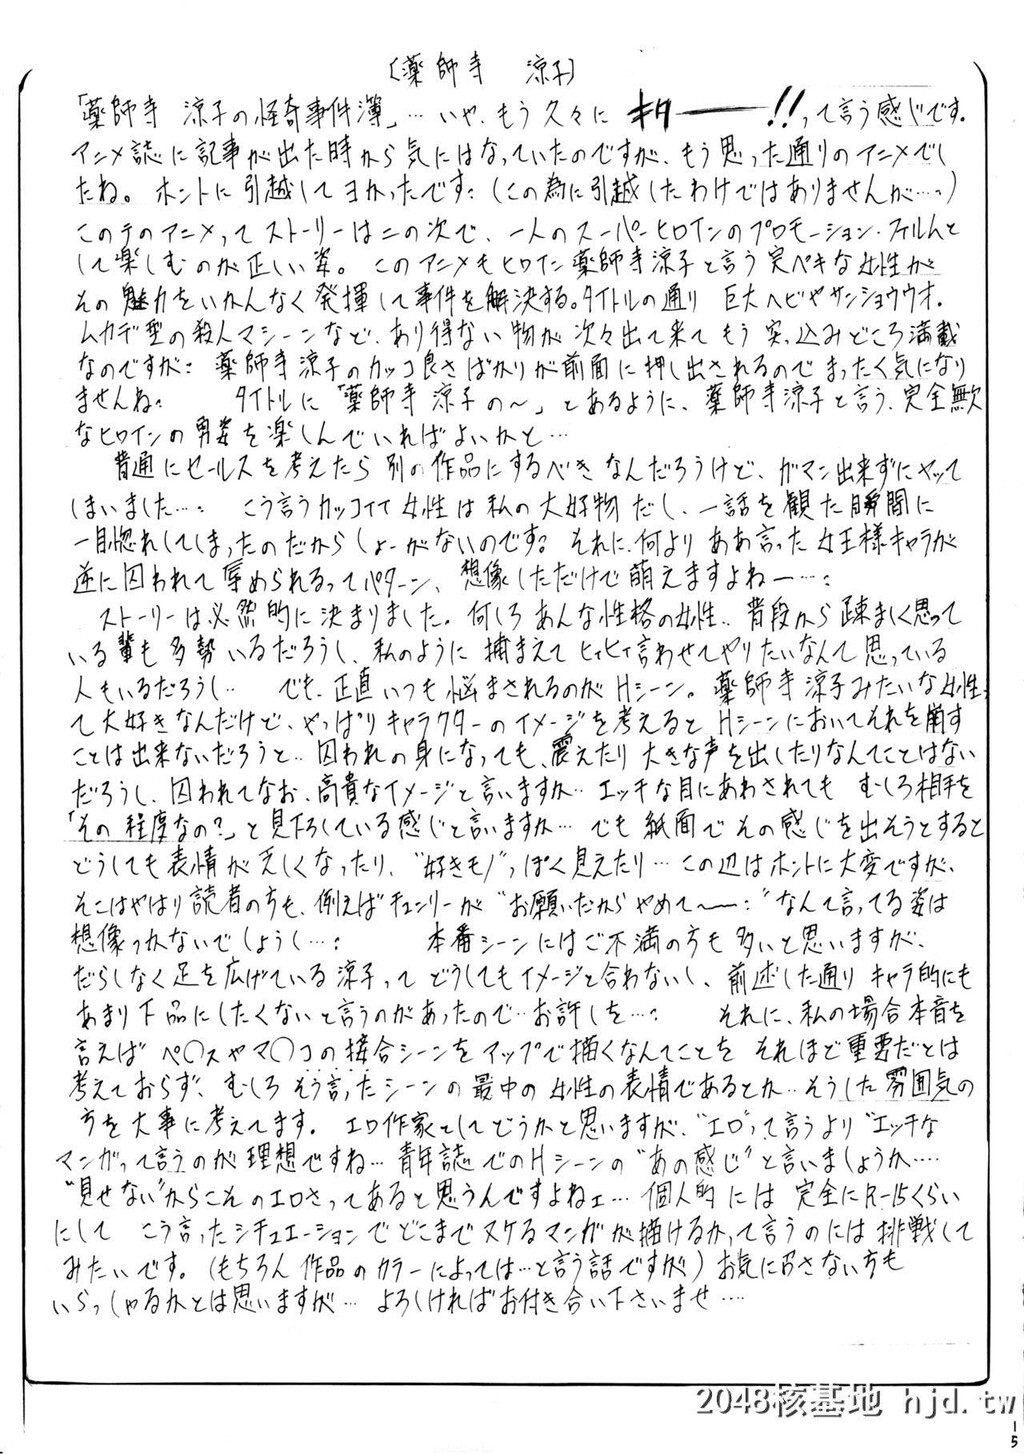 (薬師寺 涼子)
「薬師寺 涼子の怪奇事件簿」…いや、もう久々に キター!!って言う感じです。
アニメ誌に記事が出た時から気にはなっていたのですが、もう思った通りのアニメでし
たね。ホントに引越してヨかったです:(この為に引越したわけではありませんが…:)
このテのアニメってストーリーは二の次で、一人のスーパーヒロインのプロモーション・フィルムと
して楽しむのが正しい姿。このアニメもヒロイン薬師寺涼子と言う完ペキな女性が
その魅力をいかんなく発揮して事件を解決する。タイトルの通り 巨大ヘビやサンショウウオ、
ムカデ型の殺人マシーンなど、あり得ない物が次々出て来てもう突っ込みどころ満載
なのですが: 薬師寺涼子のカッコ良さばかりが前面に押し出されるのでまったく気になり
ませんね: タイトルに「薬師寺涼子の〜」とあるように、薬師寺涼子と言う、完全無欠
なヒロインの勇姿を楽しんでいればよいかと…
普通にセールスを考えたら別の作品にするべきなんだろうけど、ガマン出来ずにヤッて
しまいました…: こう言うカッコイイ女性は私の大好物だし、一話を観た瞬間に
一目惚れしてしまったのだからしょーがないのです: それに、何よりああ言った女王様キャラが
逆に囚われて辱められるってパターン、想像しただけで萌えますよねー…:
ストーリーは必然的に決まりました。何しろあんな性格の女性、普段から疎ましく思って
いる輩も多勢いるだろうし、私のように捕まえてヒィヒィ言わせてやりたいなんて思っている
人もいるだろうし… でも、正直いつも悩まされるのがHシーン。薬師寺涼子みたいな女性っ
て大好きなんだけど、やっぱりキャラクターのイメージを考えるとHシーンにおいてそれを崩す
ことは出来ないだろうと… 囚われの身になっても、震えたり大きな声を出したりなんてことはない
だろうし、囚われてなお、高貴なイメージと言いますか… エッチな目にあわされても むしろ相手を
「その程度なの?」と見下ろしている感じと言いますか… でも紙面でその感じを出そうとすると
どうしても表情が乏しくなったり、"好きモノ"っぽく見えたり… この辺はホントに大変ですが、
そこはやはり読者の方も、例えばチュンリーが "お願いだからやめて〜:"なんて言ってる姿は
想像つかないでしょうし…: 本番シーンにはご不満の方も多いと思いますが、
だらしなく足を広げている涼子ってどうしてもイメージと合わないし、前述した通りキャラ的にも
あまり下品にしたくないと言うのがあったので…お許しを…: それに、私の場合本音を
言えばペ〇スやマ〇コの接合シーンをアップで描くなんてことを それほど重要だとは
考えておらず、むしろそう言ったシーンの最中の女性の表情であるとか…そうした雰囲気の
方を大事に考えてます。エロ作家としてどうかと思いますが、"エロ"って言うより"エッチな
マンガって言うのが理想ですね…青年誌でのHシーンの"あの感じ"と言いましょうか….
"見せない"からこそのエロさってあると思うんですよねェ… 個人的には完全にR-15くらい
にして こう言ったシチュエーションでどこまでヌケるマンガが描けるかって言うのには挑戦して
みたいです。(もちろん作品のカラーによっては…と言う話ですが)お気に召さない方も
いらっしゃるかとは思いますが… よろしければお付き合い下さいませ….
2048核基地 hjd.tw
15